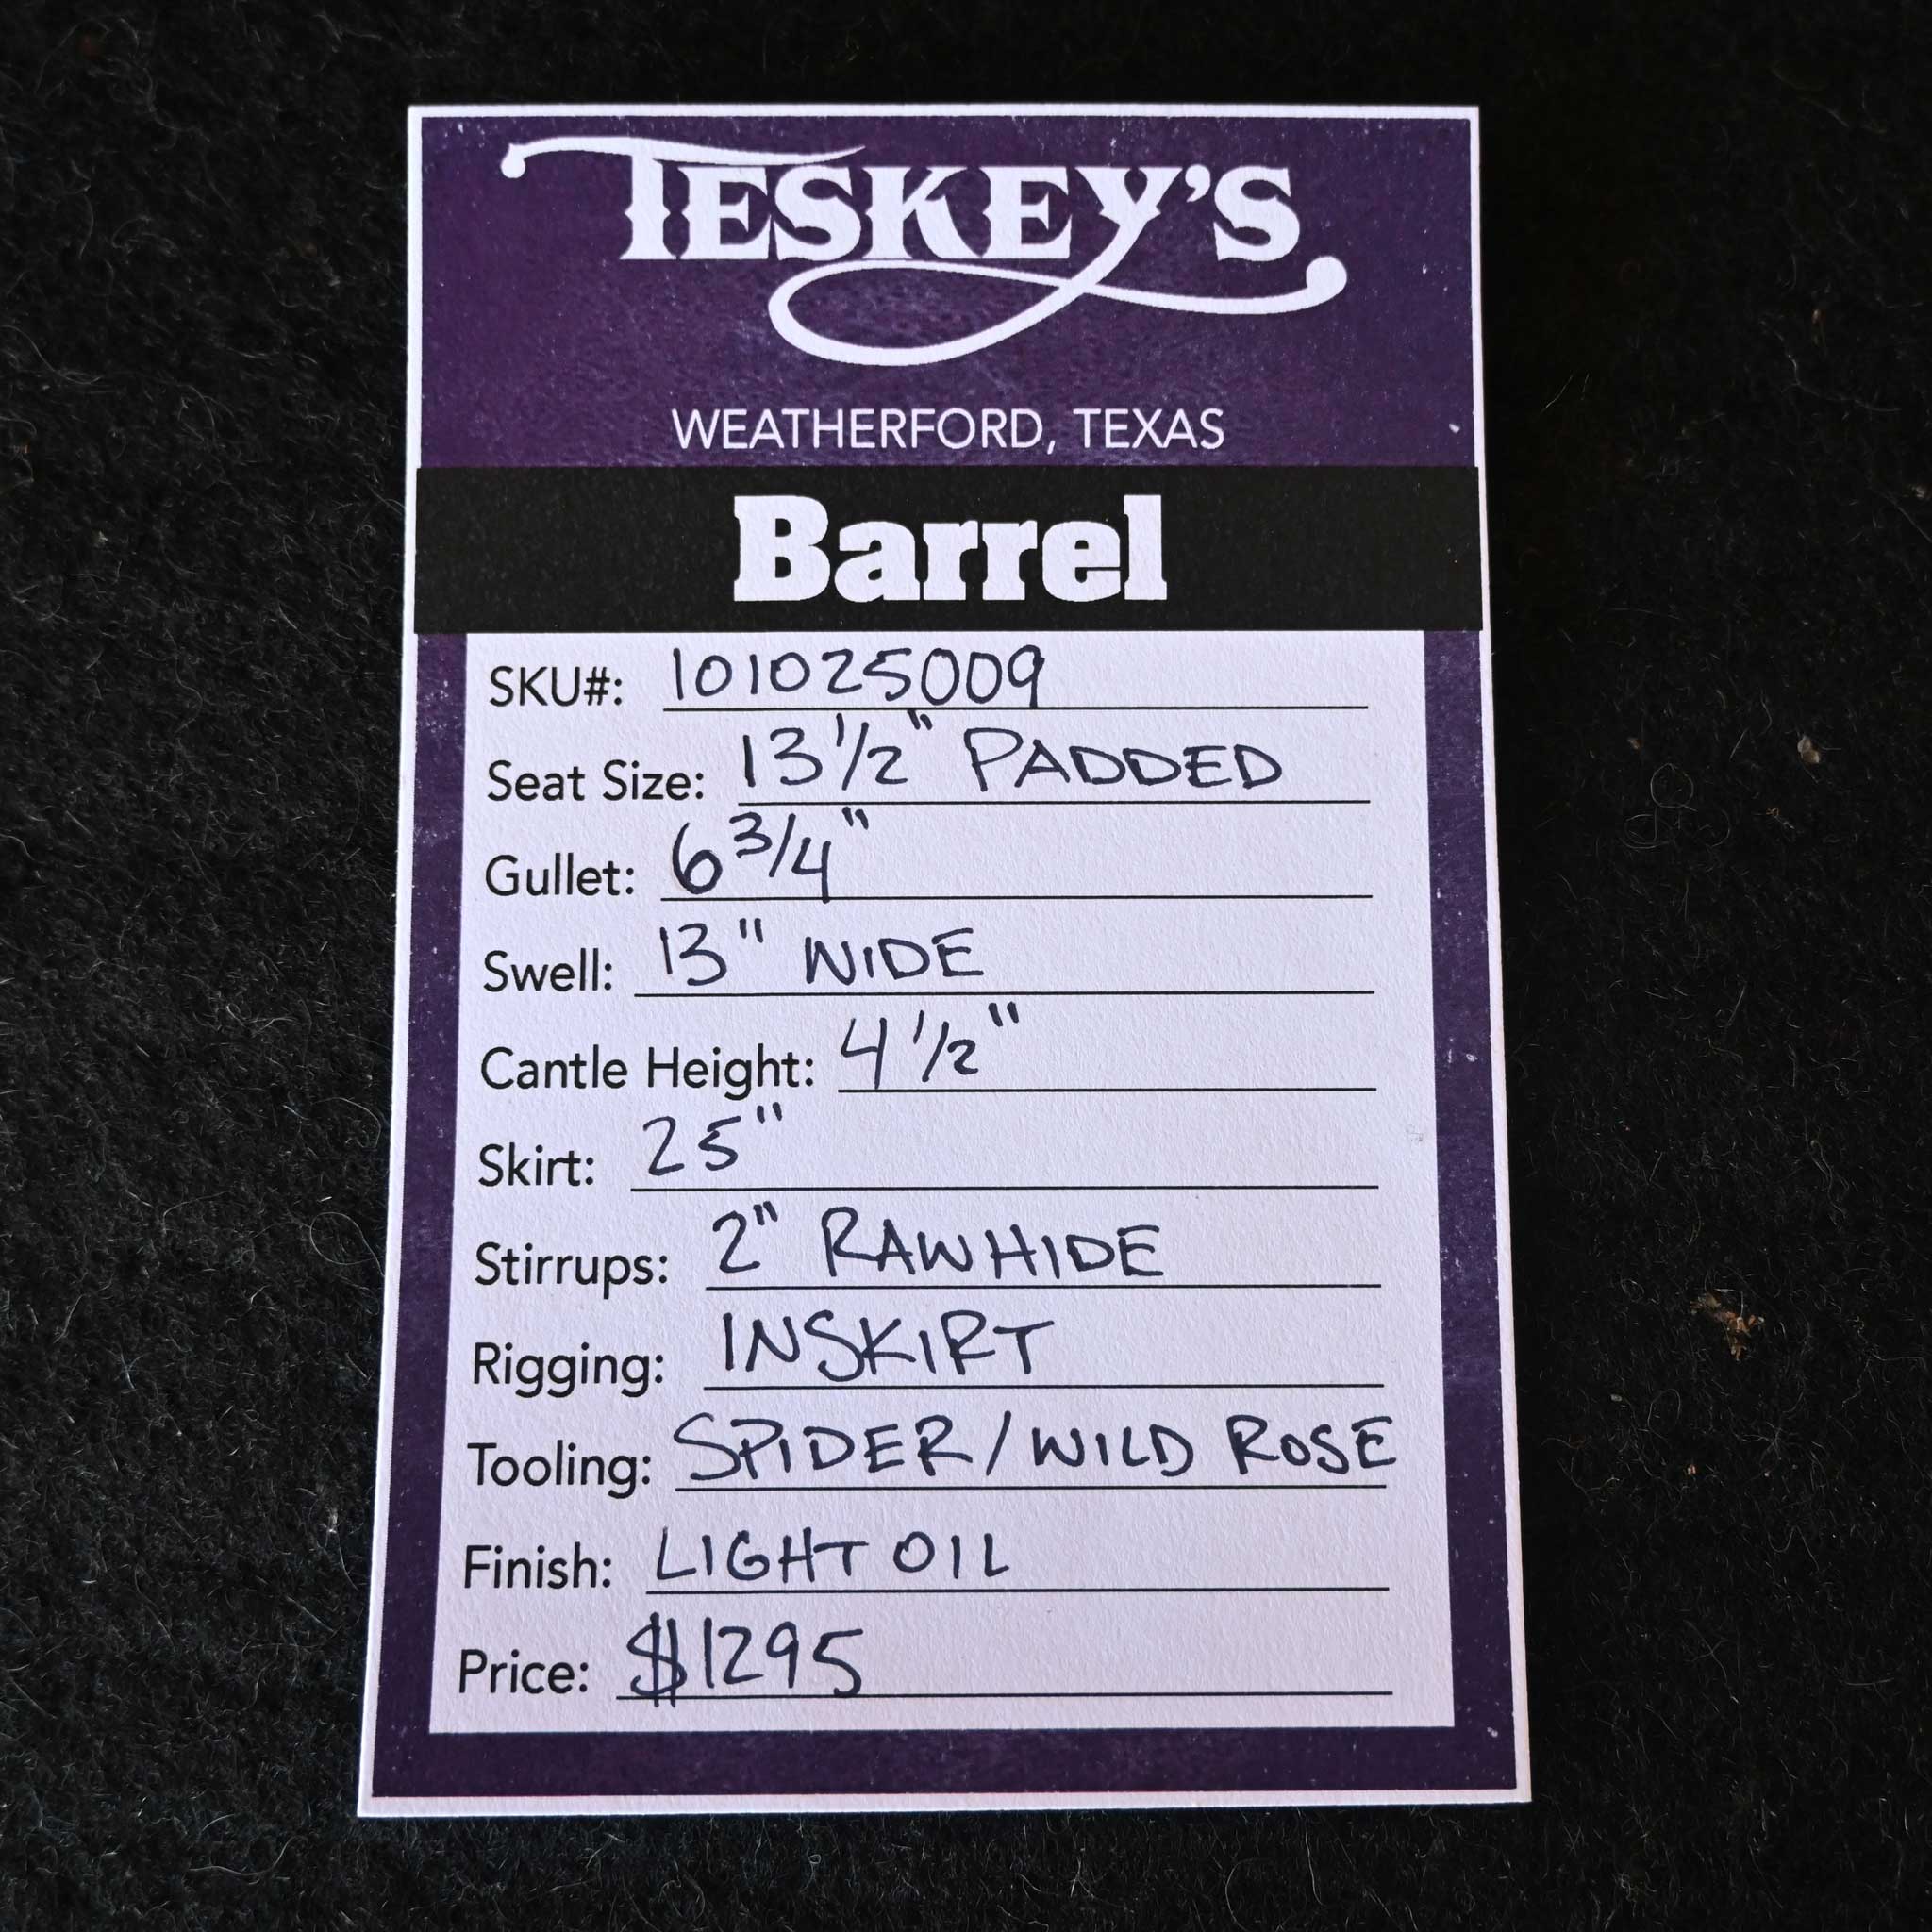 TESKEY'S
WEATHERFORD, TEXAS
Barrel
SKU#: 101025009
Seat Size: 13 1/2" PADDED
Gullet: 6 3/4"
Swell: 13" WIDE
Cantle Height: 4 1/2"
Skirt: 25"
Stirrups: 2" RAWHIDE
Rigging: INSKIRT
Tooling: SPIDER/WILD ROSE
Finish: LIGHT OIL
Price: $1295